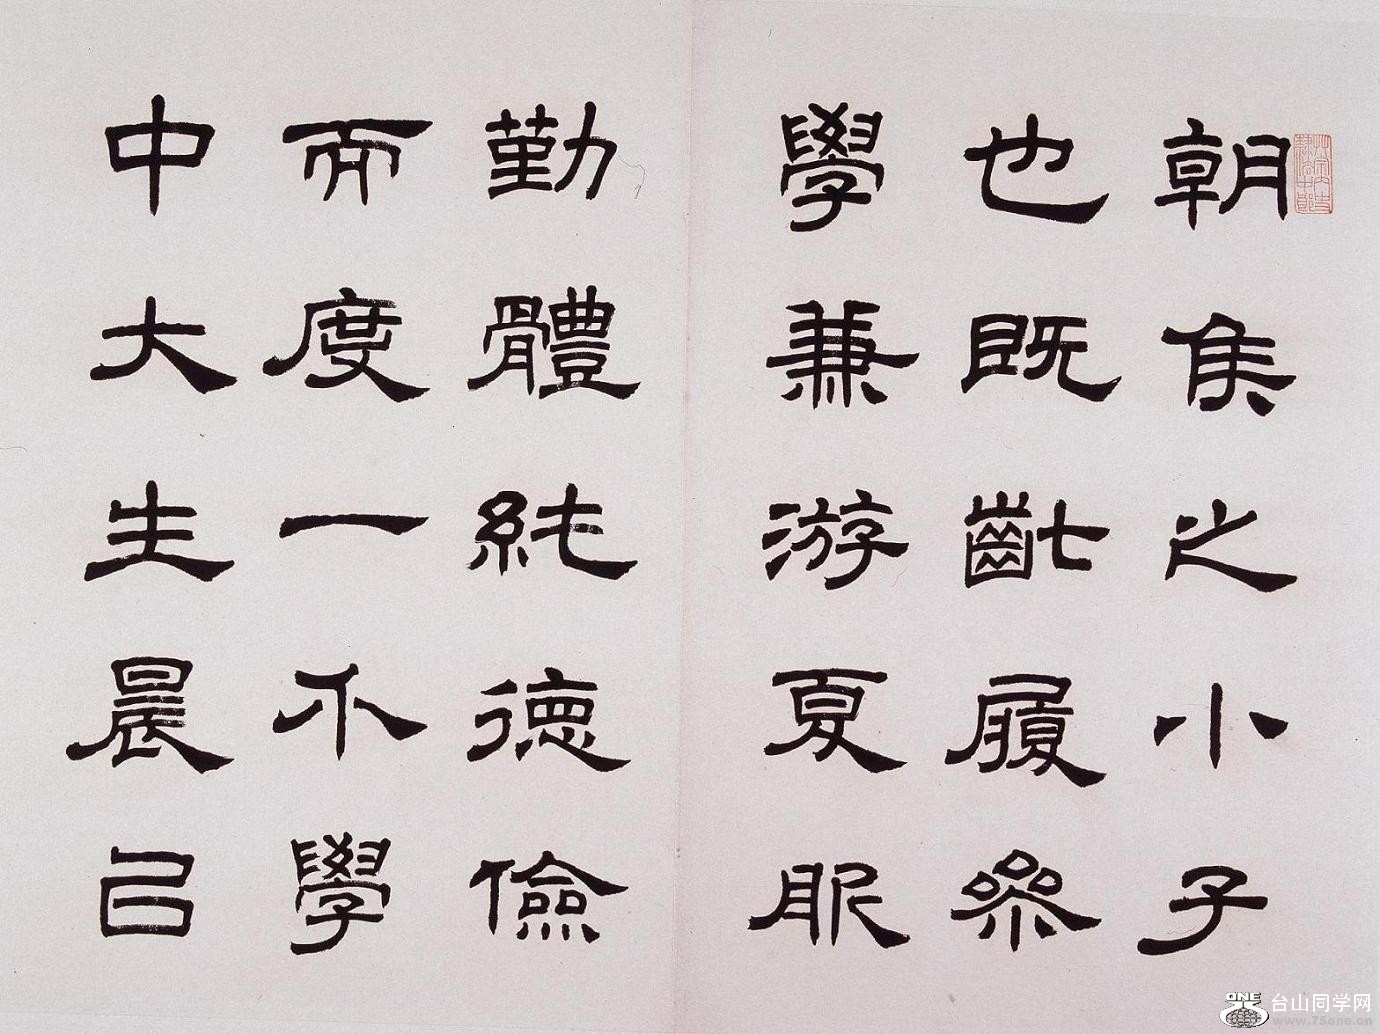 朝侯之小子
也既齔履參
學兼游夏服
勤體純德儉
而度一不學
中大生晨己
台山同学网
www.75one.cn
ONE